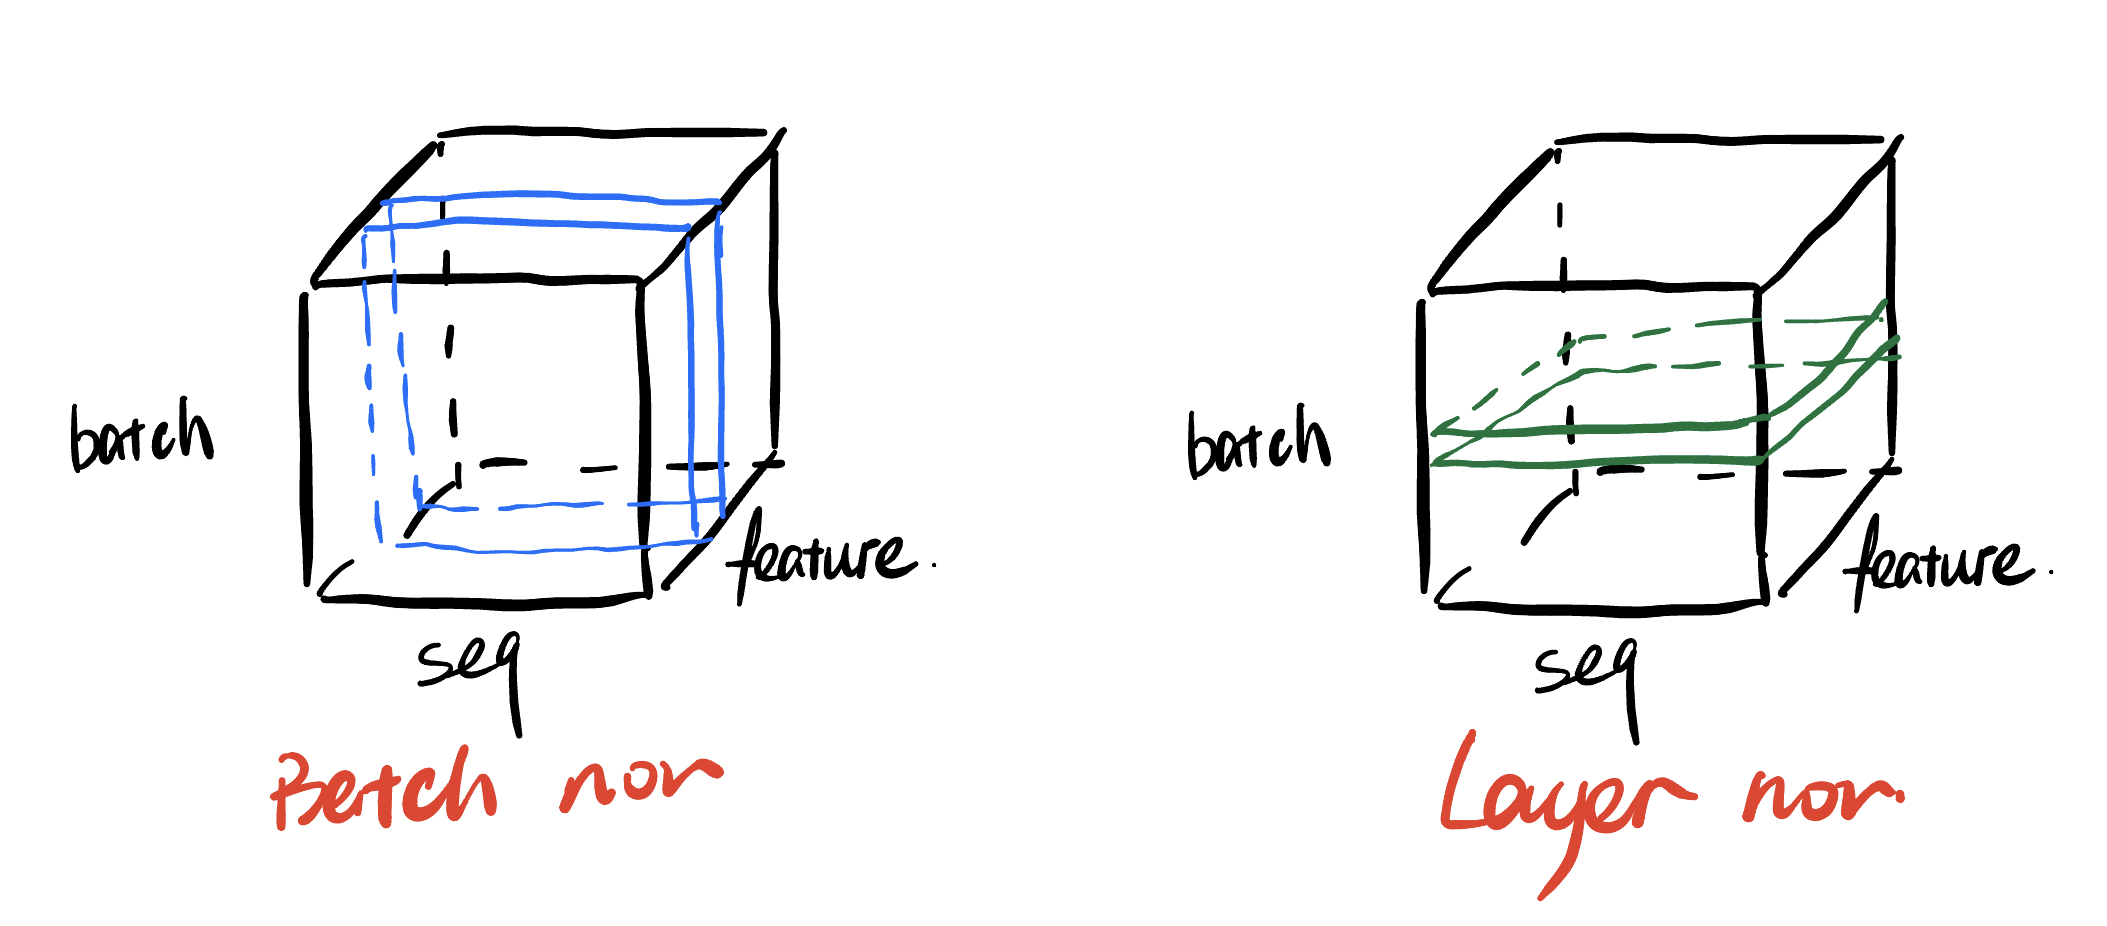 batch
feature.
seq
Batch nor
batch
feature.
seq
Layer nor